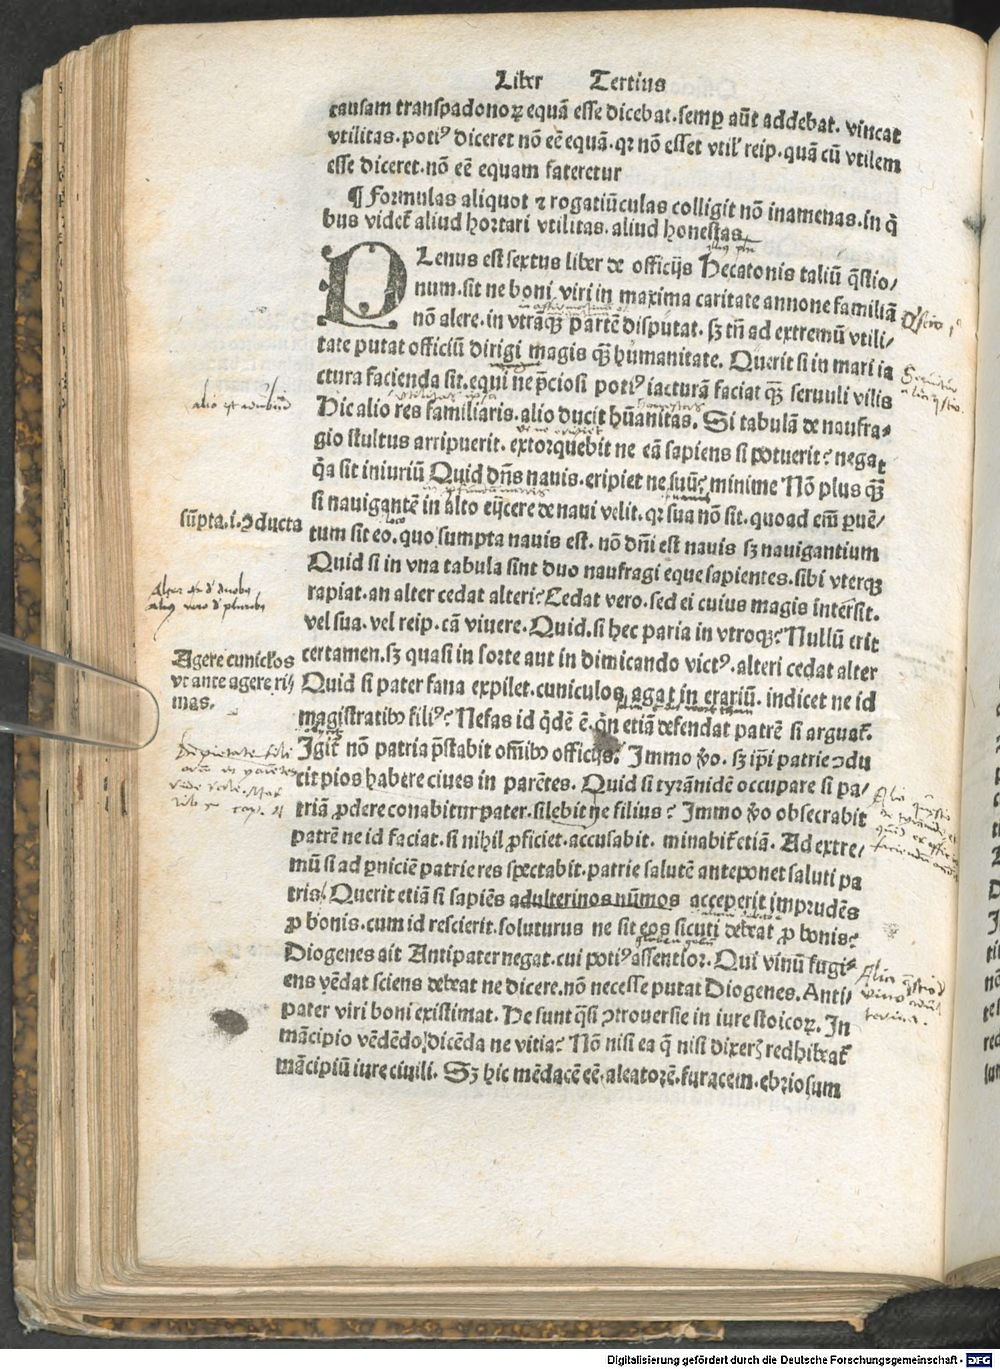 Liber Tertius
causam transpadonoꝝ equā esse dicebat. semꝑ aūt addebat. vincat
vtilitas. potiꝰ diceret nō eē equā. qꝛ nō esset vtil' reip. quā cū vtilem
esse diceret. nō eē equam fateretur
¶ Formulas aliquot ⁊ rogatiūculas colligit nō inamenas. in q̄
bus videt᷑ aliud hortari vtilitas. aliud honestas.
PLenus est sextus liber de officijs Hecatonis taliū q̄stio/
num. sit ne boni viri in maxima caritate annone familiā
nō alere. in vtraqꝫ partē disputat. sꝫ tn̄ ad extremū vtili/
tate putat officiū dirigi magis qꝫ̄ humanitate. Querit si in mari ia
ctura facienda sit. equi ne p̄ciosi potiꝰ iacturā faciat qꝫ̄ seruuli vilis
Hic alio res familiaris. alio ducit hūanitas. Si tabulā de naufra-
gio stultus arripuerit. extorquebit ne eā sapiens si potuerit? negat
q̄a sit iniuriū Quid dn̄s nauis. eripiet ne suū? minime Nō plus qꝫ̄
si nauigantē in alto eijcere de naui velit. qꝛ sua nō sit. quoad em̄ ꝑuē/
sūpta. i. ↄducta
tum sit eo. quo sumpta nauis est. nō dn̄i est nauis sꝫ nauigantium
Quid si in vna tabula sint duo naufragi eque sapientes. sibi vterqꝫ
rapiat. an alter cedat alteri? Cedat vero. sed ei cuius magis inter̄sit.
vel sua. vel reip. cā viuere. Quid. si hec paria in vtroqꝫ? Nullū erit
Agere cunic'los
vt ante agere ri/
mas.
certamen. sꝫ quasi in sorte aut in dimicando victꝰ. alteri cedat alter
Quid si pater fana expilet. cuniculos agat in erariū. indicet ne id
magistratibꝰ filiꝰ? Nefas id q̄dē ē. q̄n etiā defendat patrē si arguat᷑.
Igit᷑ nō patria p̄stabit om̄ibꝰ officijs? Immo v̄o. sꝫ ip̄i patrie ↄdu
cit pios habere ciues in parētes. Quid si tyrānidē occupare si pa/
triā ꝓdere conabitur pater. silebit ne filius? Immo v̄o obsecrabit
patrē ne id faciat. si nihil ꝓficiet. accusabit. minabit᷑ etiā. Ad extre/
mū si ad ꝑniciē patrie res spectabit. patrie salutē anteponet saluti pa
tris. Querit etiā si sapiēs adulterinos nūmos acceperit imprudēs
ꝓ bonis. cum id rescierit. soluturus ne sit eos sicuti debeat ꝓ bonis?
Diogenes ait Antipater negat. cui potiꝰ assentior. Qui vinū fugi-
ens vēdat sciens debeat ne dicere. nō necesse putat Diogenes. Anti/
pater viri boni existimat. He sunt q̄si ↄtrouersie in iure stoicoꝝ. In
mācipio vēdēdo dicēda ne vitia? Nō nisi ea q̄ nisi dixerꝭ redhibeat᷑
mācipiū iure ciuili. Sꝫ hic mēdacē eē. aleatorē. furacem. ebriosum
Digitalisierung gefördert durch die Deutsche Forschungsgemeinschaft - DFG